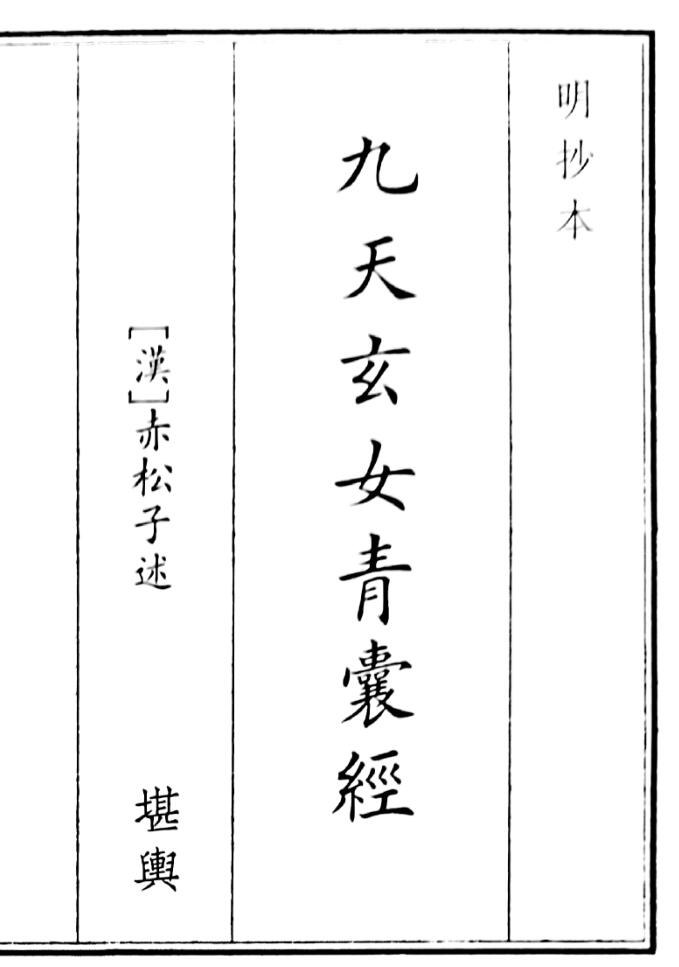 明抄本
九天玄女青囊經
[漢]赤松子述
堪輿